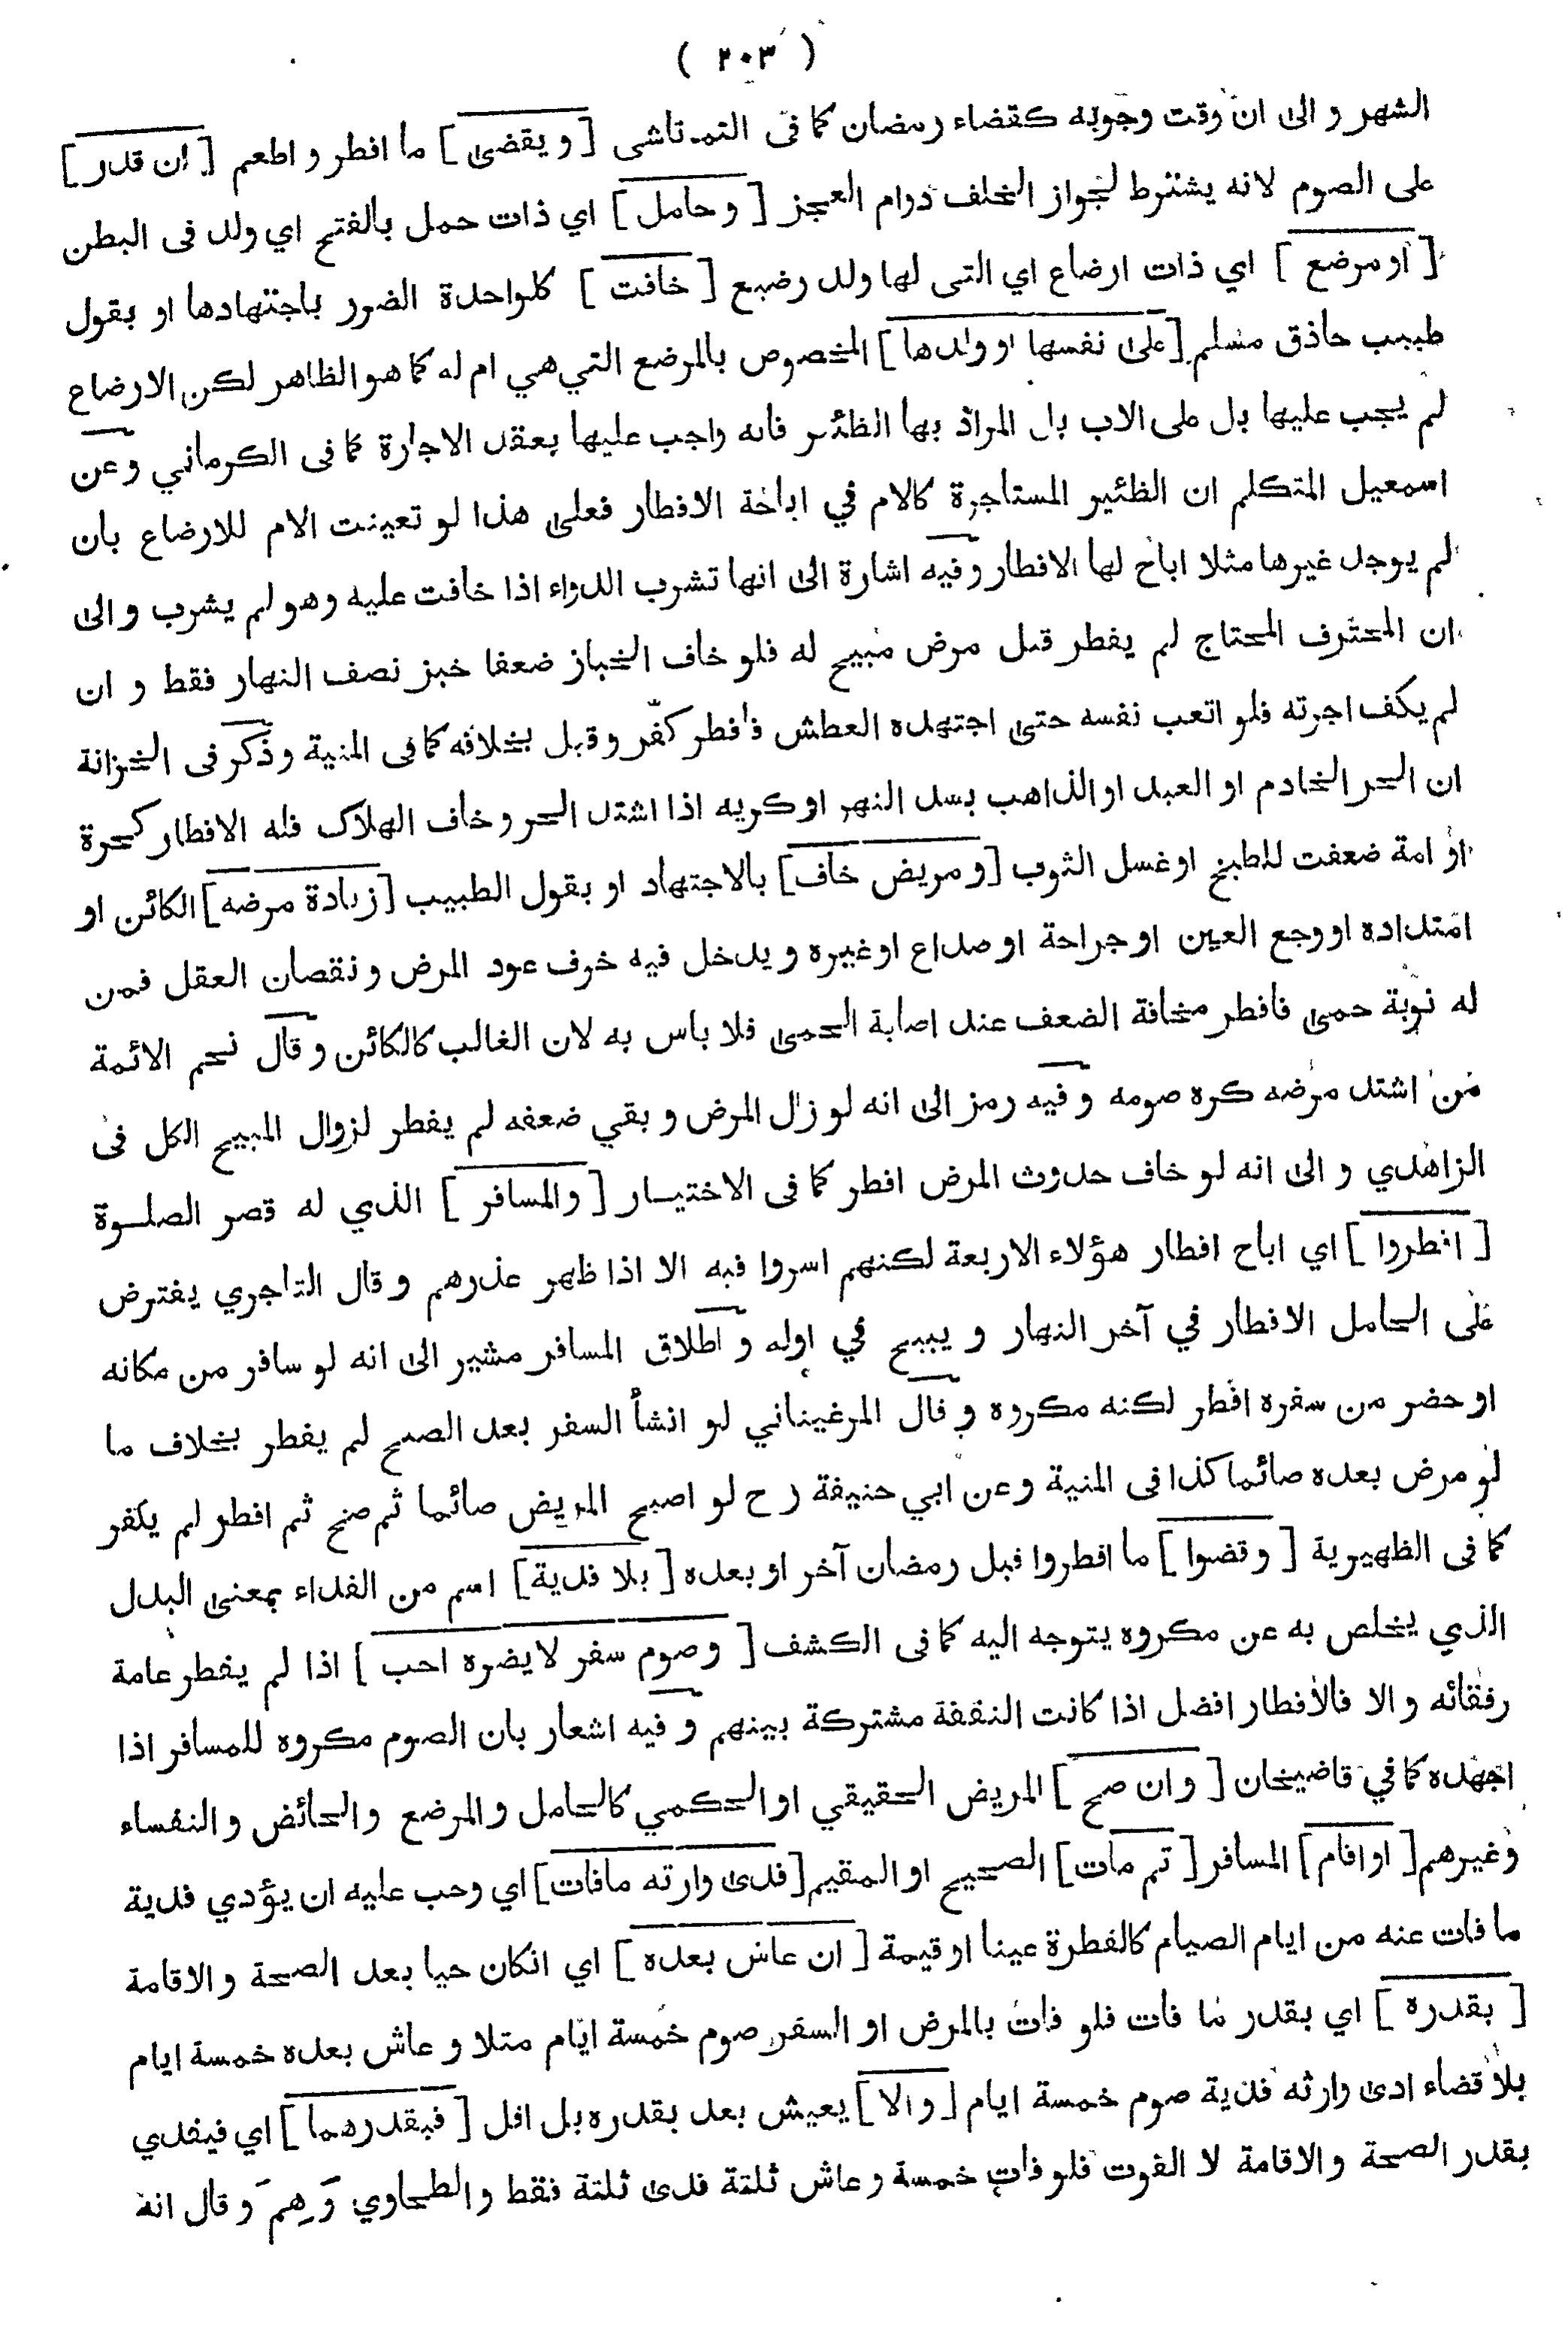 ( ٢٠٣ )
الشهر و الى ان وقت وجوبه كقضاء رمضان كما فى التمرتاشى [ و يقضى ] ما افطر و اطعم [ ان قدر ]
على الصوم لانه يشترط لجواز الخلف دوام العجز [ و حامل ] اي ذات حمل بالفتح اي ولد فى البطن
[ او مرضع ] اي ذات ارضاع اي التى لها ولد رضيع [ خافت ] كلواحدة الضرر باجتهادها او بقول
طبيب حاذق مسلم [ على نفسها او ولدها ] المخصوص بالمرضع التي هي ام له كما هو الظاهر لكن الارضاع
لم يجب عليها بل على الاب بل المراد بها الظئر فانه واجب عليها بعقد الاجارة كما فى الكرماني و عن
اسمعيل المتكلم ان الظئير المستاجرة كالام في اباحة الافطار فعلى هذا لو تعينت الام للارضاع بان
لم يوجد غيرها مثلا اباح لها الافطار و فيه اشارة الى انها تشرب الدواء اذا خافت عليه و هو لم يشرب و الى
ان المحترف المحتاج لم يفطر قبل مرض مبيح له فلو خاف الخباز ضعفا خبز نصف النهار فقط و ان
لم يكف اجرته فلو اتعب نفسه حتى اجتهده العطش فافطر كفّر و قيل بخلافه كما فى المنية و ذكر فى الخزانة
ان الحر الخادم او العبد او الذاهب بسد النهر او كريه اذا اشتد الحر و خاف الهلاك فله الافطار كحرة
او امة ضعفت للطبخ او غسل الثوب [ و مريض خاف ] بالاجتهاد او بقول الطبيب [ زيادة مرضه ] الكائن او
امتداده او وجع العين او جراحة او صداع او غيره و يدخل فيه خوف عود المرض و نقصان العقل فمن
له نوبة حمى فافطر مخافة الضعف عند اصابة الحمى فلا باس به لان الغالب كالكائن و قال نجم الائمة
من اشتد مرضه كره صومه و فيه رمز الى انه لو زال المرض و بقي ضعفه لم يفطر لزوال المبيح الكل فى
الزاهدي و الى انه لو خاف حدوث المرض افطر كما فى الاختيار [ والمسافر ] الذي له قصر الصلوة
[ افطروا ] اي اباح افطار هؤلاء الاربعة لكنهم اسروا فيه الا اذا ظهر عذرهم و قال التاجري يفترض
على الحامل الافطار في آخر النهار و يبيح في اوله و اطلاق المسافر مشير الى انه لو سافر من مكانه
او حضر من سفره افطر لكنه مكروه و قال المرغيناني لو انشأ السفر بعد الصبح لم يفطر بخلاف ما
لو مرض بعده صائما كذا فى المنية و عن ابي حنيفة ر ح لو اصبح المريض صائما ثم صح ثم افطر لم يكفر
كما فى الظهيرية [ و قضوا ] ما افطروا قبل رمضان آخر او بعده [ بلا فدية ] اسم من الفداء بمعنى البدل
الذي يخلص به عن مكروه يتوجه اليه كما فى الكشف [ و صوم سفر لا يضره احب ] اذا لم يفطر عامة
رفقائه و الا فالافطار افضل اذا كانت النفقة مشتركة بينهم و فيه اشعار بان الصوم مكروه للمسافر اذا
اجهده كما في قاضيخان [ و ان صح ] المريض الحقيقي او الحكمي كالحامل والمرضع والحائض والنفساء
وغيرهم [ او اقام ] المسافر [ ثم مات ] الصحيح او المقيم [ فدى وارثه مافات ] اي وجب عليه ان يؤدي فدية
ما فات عنه من ايام الصيام كالفطرة عينا او قيمة [ ان عاش بعده ] اي انكان حيا بعد الصحة و الاقامة
[ بقدره ] اي بقدر ما فات فلو فات بالمرض او السفر صوم خمسة ايام مثلا و عاش بعده خمسة ايام
بلا قضاء ادى وارثه فدية صوم خمسة ايام [ و الا ] يعيش بعد بقدره بل اقل [ فبقدرهما ] اي فيفدي
بقدر الصحة و الاقامة لا الفوت فلو فات خمسة و عاش ثلثة فدى ثلثة فقط و الطحاوي وَهِمَ و قال انه